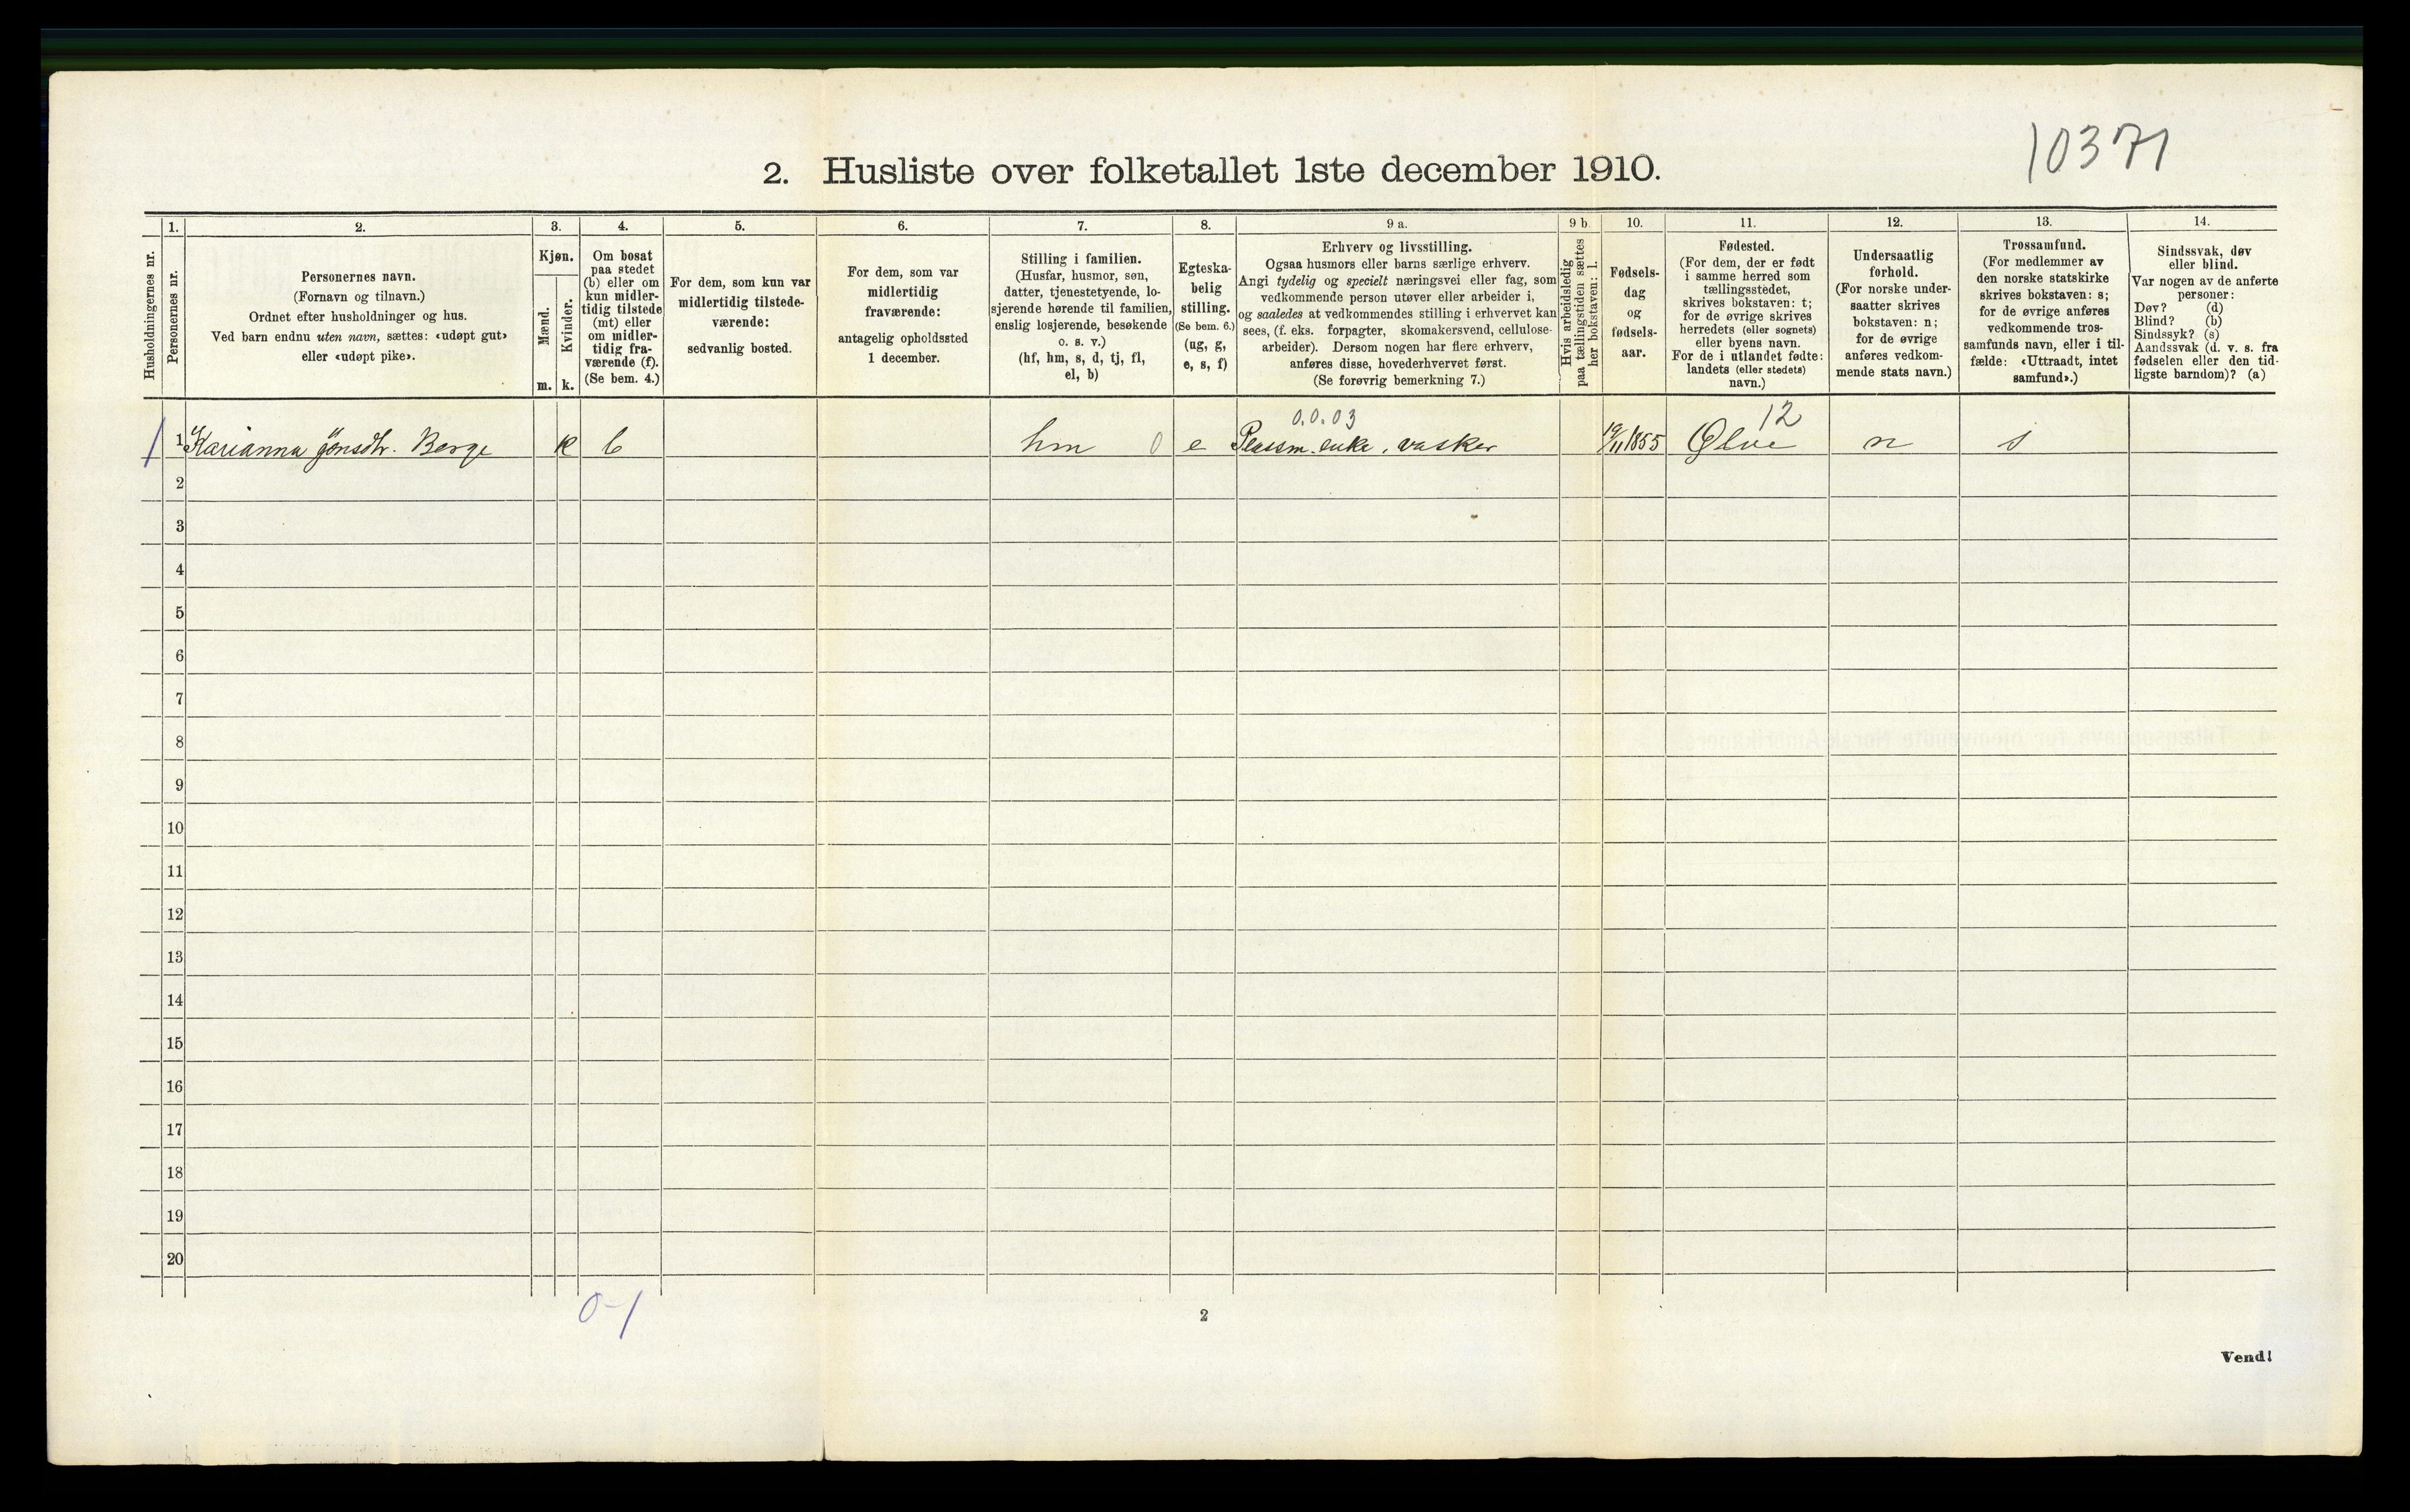 10371
2. Husliste over folketallet 1ste december 1910.
Husholdningernes nr.
1.
Personernes nr.
2.
Personernes navn.
(Fornavn og tilnavn.)
Ordnet efter husholdninger og hus.
Ved barn endnu uten navn, sættes: «udøpt gut»
eller «udøpt pike».
3.
Kjøn.
Mænd.
m.
Kvinder.
k.
4.
Om bosat
paa stedet
(b) eller om
kun midler-
tidig tilstede
(mt) eller
om midler-
tidig fra-
værende (f).
(Se bem. 4.)
5.
For dem, som kun var
midlertidig tilstede-
værende:
sedvanlig bosted.
6.
For dem, som var
midlertidig
fraværende:
antagelig opholdssted
1 december.
7.
Stilling i familien.
(Husfar, husmor, søn,
datter, tjenestetyende, lo-
sjerende hørende til familien,
enslig losjerende, besøkende
o. s. v.)
(hf, hm, s, d, tj, fl,
el, b)
8.
Egteska-
belig
stilling.
(Se bem. 6.)
(ug, g,
e, s, f)
9 a.
Erhverv og livsstilling.
Ogsaa husmors eller barns særlige erhverv.
Angi tydelig og specielt næringsvei eller fag, som
vedkommende person utøver eller arbeider i,
og saaledes at vedkommendes stilling i erhvervet kan
sees, (f. eks. forpagter, skomakersvend, cellulose-
arbeider). Dersom nogen har flere erhverv,
anføres disse, hovederhvervet først.
(Se forøvrig bemerkning 7.)
9 b.
Hvis arbeidsledig
paa tællingstiden sættes
her bokstaven: l.
10.
Fødsels-
dag
og
fødsels-
aar.
11.
Fødested.
(For dem, der er født
i samme herred som
tællingsstedet,
skrives bokstaven: t;
for de øvrige skrives
herredets (eller sognets)
eller byens navn.
For de i utlandet fødte:
landets (eller stedets)
navn.)
12.
Undersaatlig
forhold.
(For norske under-
saatter skrives
bokstaven: n;
for de øvrige
anføres vedkom-
mende stats navn.)
13.
Trossamfund.
(For medlemmer av
den norske statskirke
skrives bokstaven: s;
for de øvrige anføres
vedkommende tros-
samfunds navn, eller i til-
fælde: «Uttraadt, intet
samfund».)
14.
Sindssvak, døv
eller blind.
Var nogen av de anførte
personer:
Døv? (d)
Blind? (b)
Sindssyk? (s)
Aandssvak (d. v. s. fra
fødselen eller den tid-
ligste barndom)? (a)
0.0.03 12
1 1 Karianna Jønsdtr. Berge k b hm 0 e Plassm. enke, vasker 19/11 1855 Ølve n s
2
3
4
5
6
7
8
9
10
11
12
13
14
15
16
17
18
19
20
0-1
2
Vend!